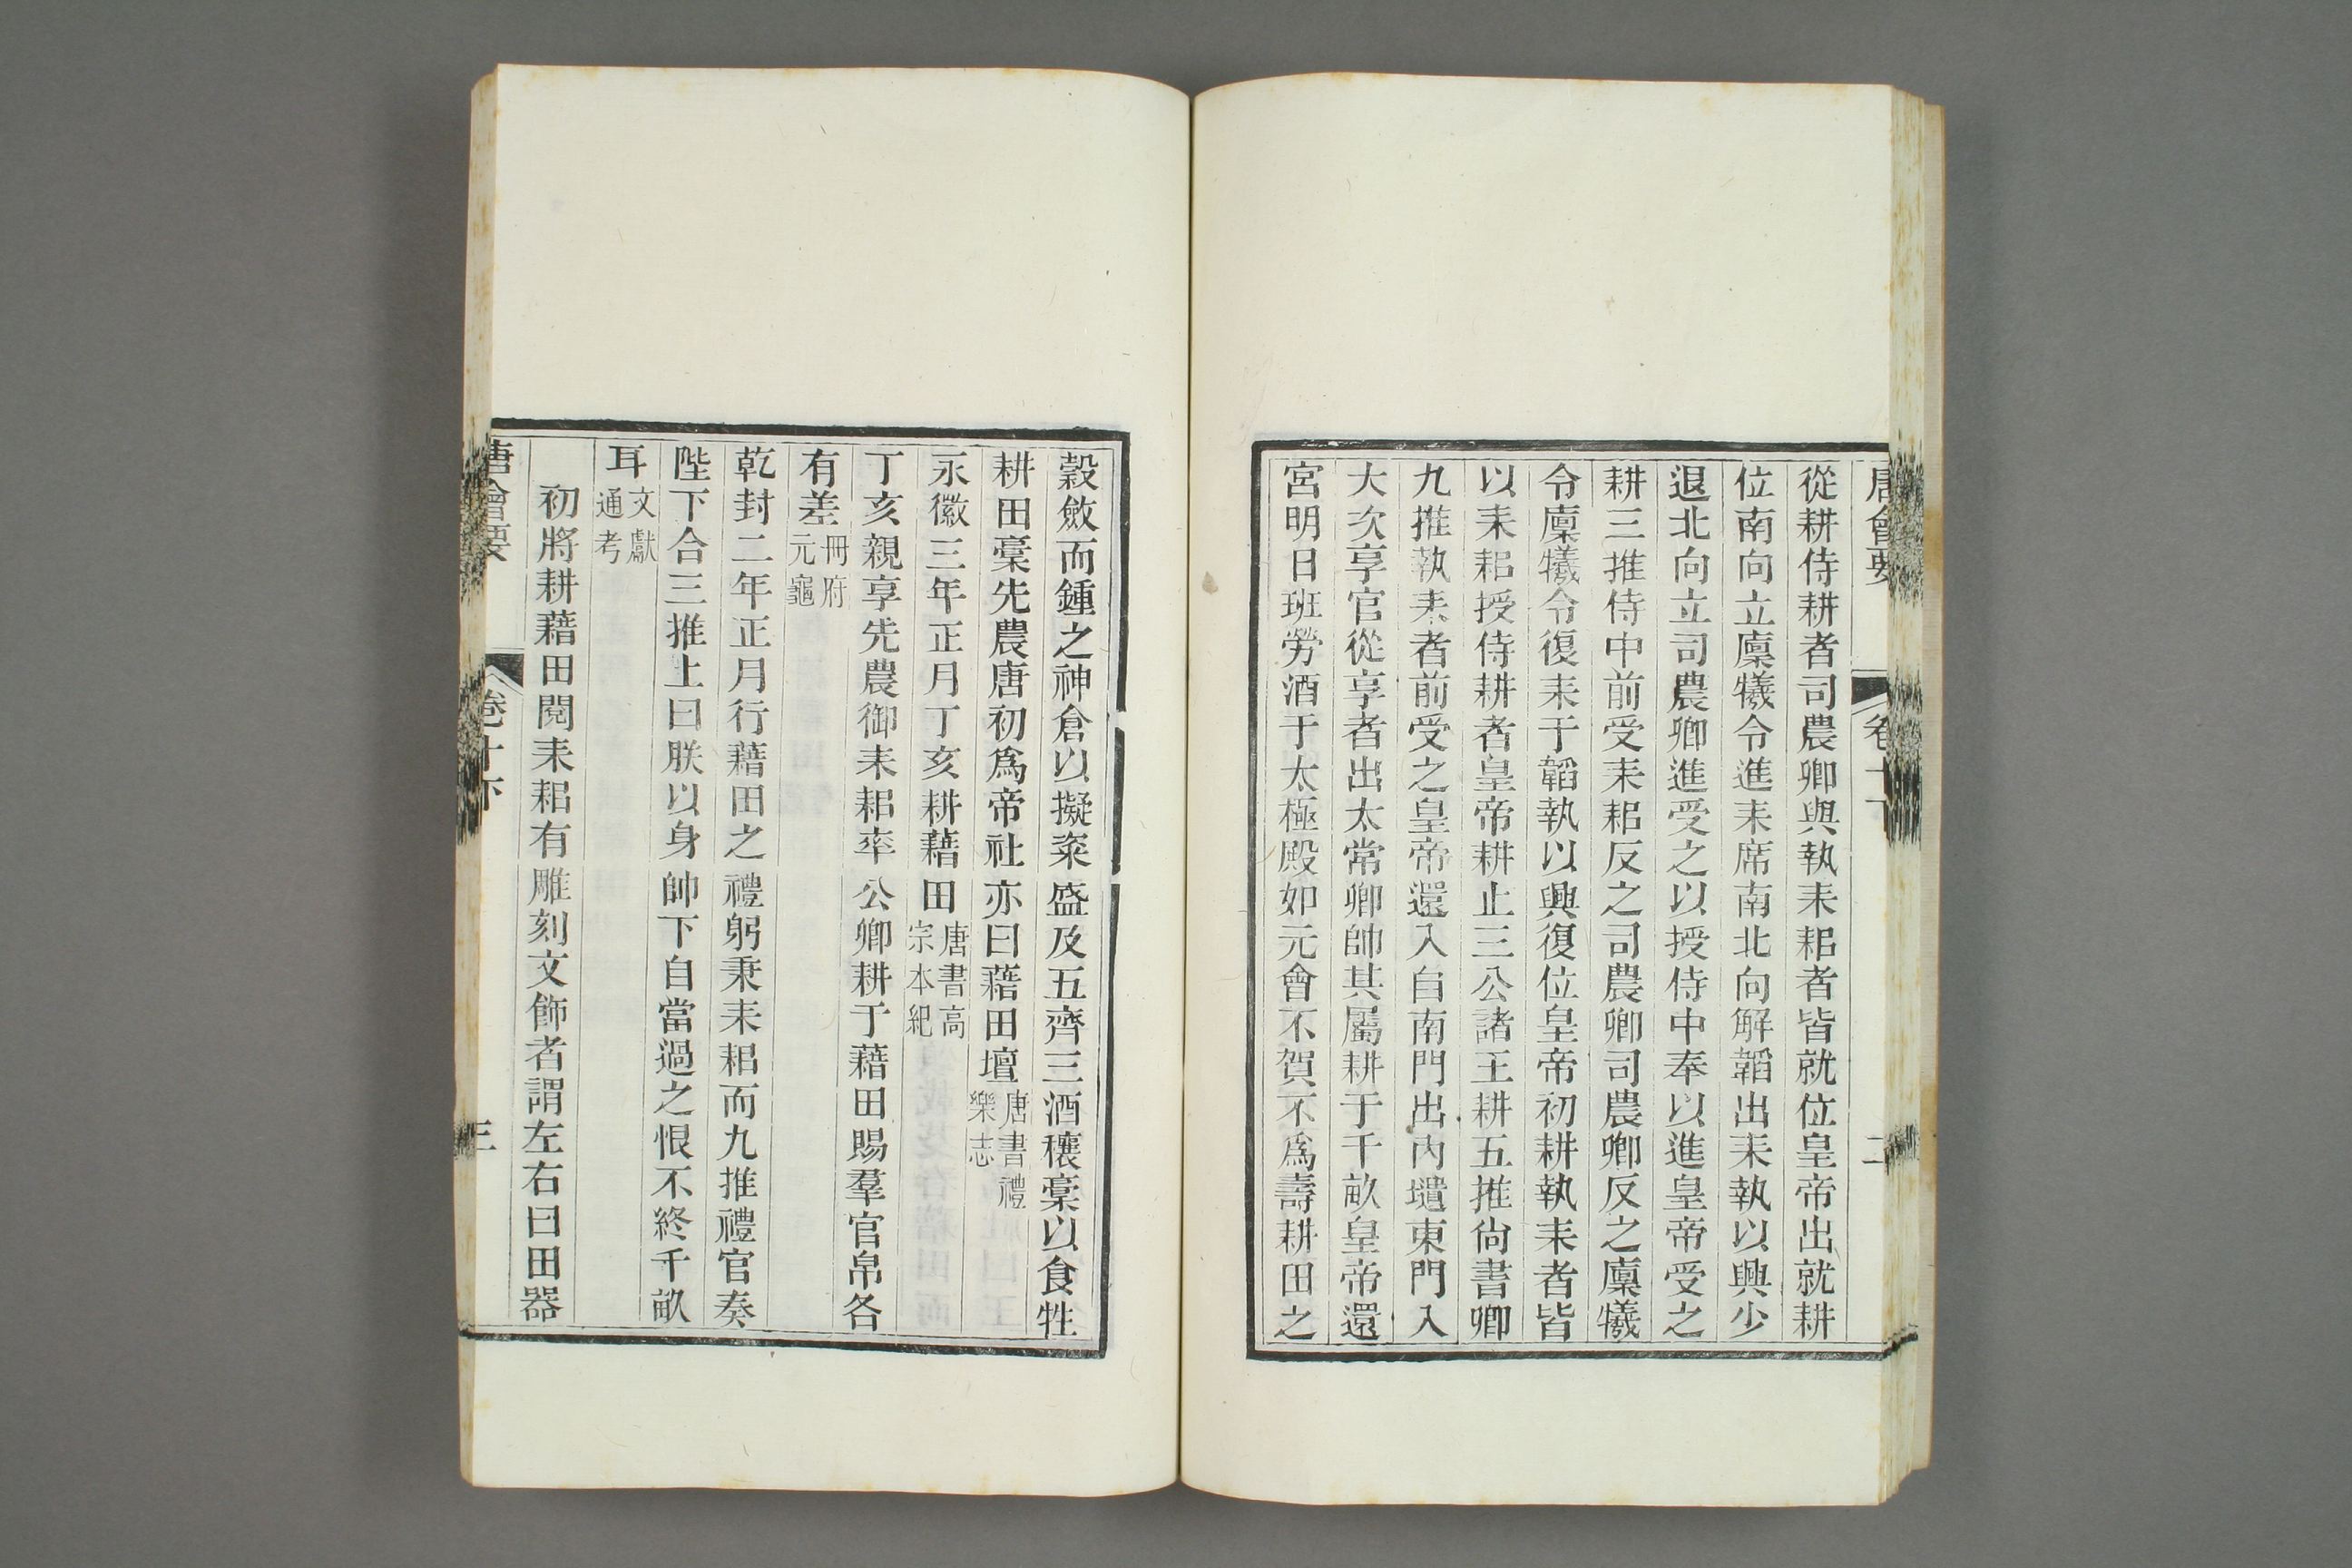 唐會要 卷十下 二
從耕侍耕者司農卿與執耒耜者皆就位皇帝出就耕
位南向立廩犧令進耒席南北向解韜出耒執以興少
退北向立司農卿進受之以授侍中奉以進皇帝受之
耕三推侍中前受耒耜反之司農卿司農卿反之廩犧
令廩犧令復耒于韜執以興復位皇帝初耕執耒者皆
以耒耜授侍耕者皇帝耕止三公諸王耕五推尙書卿
九推執耒者前受之皇帝還入自南門出內壝東門入
大次享官從享者出太常卿帥其屬耕于千畝皇帝還
宮明日班勞酒于太極殿如元會不賀不爲壽耕田之
穀斂而鍾之神倉以擬粢盛及五齊三酒穰稾以食牲
耕田稾先農唐初爲帝社亦曰藉田壇唐書禮樂志
永徽三年正月丁亥耕藉田唐書高宗本紀
丁亥親享先農御耒耜率公卿耕于藉田賜羣官帛各
有差冊府元龜
乾封二年正月行藉田之禮躬秉耒耜而九推禮官奏
陛下合三推上曰朕以身帥下自當過之恨不終千畝
耳文獻通考
初將耕藉田閱耒耜有雕刻文飾者謂左右曰田器
唐會要 卷十下 三